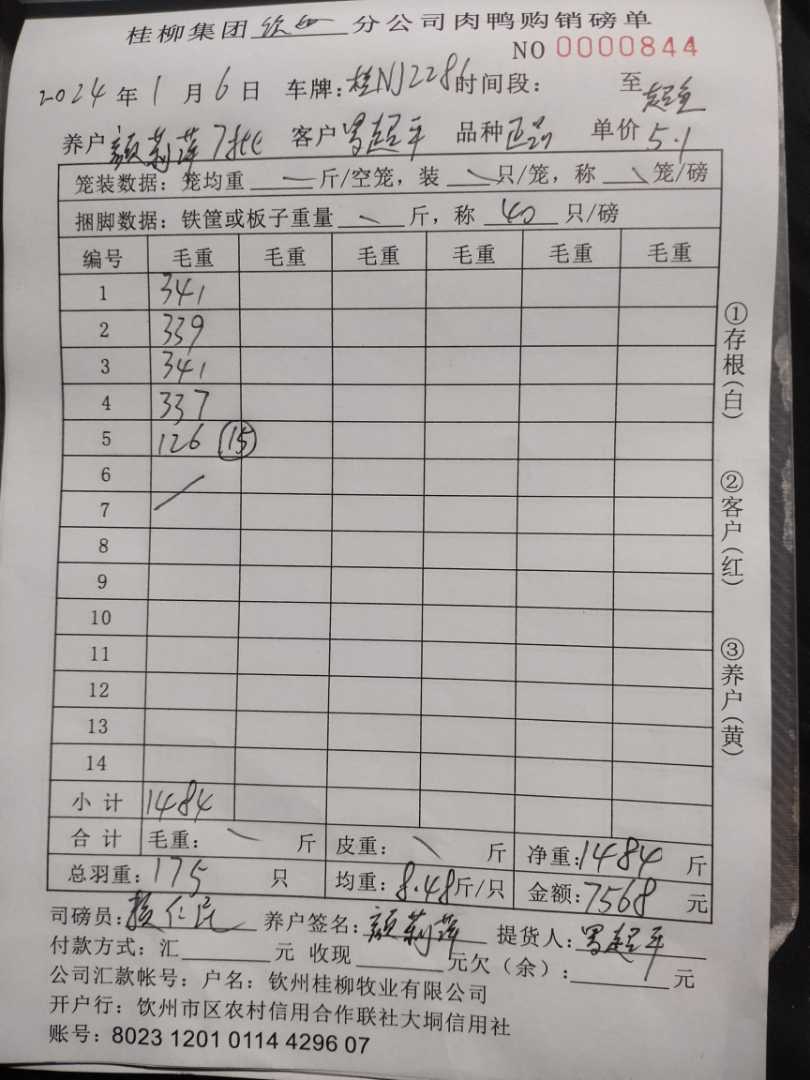 桂柳集团 钦州 分公司肉鸭购销磅单
NO 0000844
2024 年 1 月 6 日 车牌：桂NJ2286 时间段： 至
养户 颜莉萍7批 客户 罗超平 品种 正品 单价 5.1
笼装数据：笼均重 — 斤/空笼，装 \ 只/笼，称 \ 笼/磅
捆脚数据：铁筐或板子重量 \ 斤，称 40 只/磅
编号 毛重 毛重 毛重 毛重 毛重 毛重
1 341
2 339
3 341
4 337
5 126 (15)
6
7
8
9
10
11
12
13
14
小计 1484
合计 毛重： \ 斤 皮重： \ 斤 净重：1484 斤
总羽重：175 只 均重：8.48斤/只 金额：7568 元
司磅员： 养户签名：颜莉萍 提货人：罗超平
付款方式：汇 元 收现 元欠（余）： 元
公司汇款帐号：户名：钦州桂柳牧业有限公司
开户行：钦州市区农村信用合作联社大垌信用社
账号：8023 1201 0114 4296 07
①存根（白）
②客户（红）
③养户（黄）